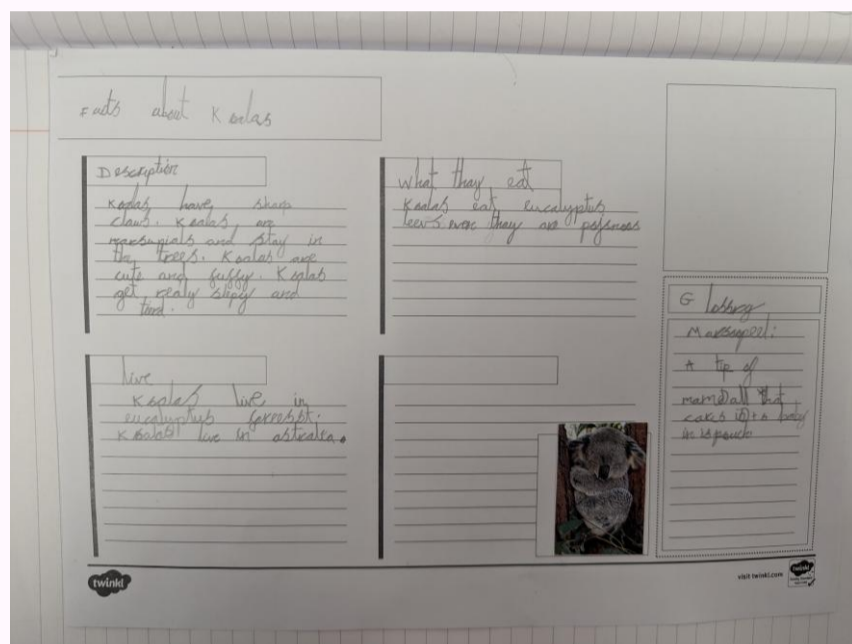 Facts about Koalas
Description
Koalas have sharp
claws. Koalas are
marsupials and stay in
the trees. Koalas are
cute and fuffy. Koalas
get realy slipy and
tired.
What thay eat
Koalas eat eucalyptus
leevs even thay are
live
Koalas live in
eucalyptus forresst.
Koalas live in astralea.
Glossry
Marsopeel:
A tip of
mam all that
cares it+s baby
in is pouch
twinkl
visit twinkl.com
twinkl